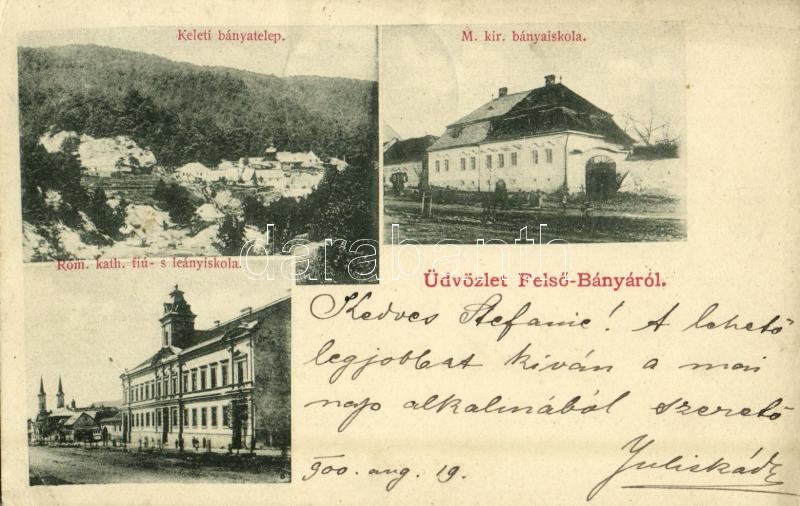 Keleti bányatelep.
M. kir. bányaiskola.
Róm. kath. fiú- s leányiskola.
darabanth
Üdvözlet Felső-Bányáról.
Kedves Stefanie! A lehető
legjobbat kíván a mai
nap alkalmából szerető
Juliskád
900. aug. 19.